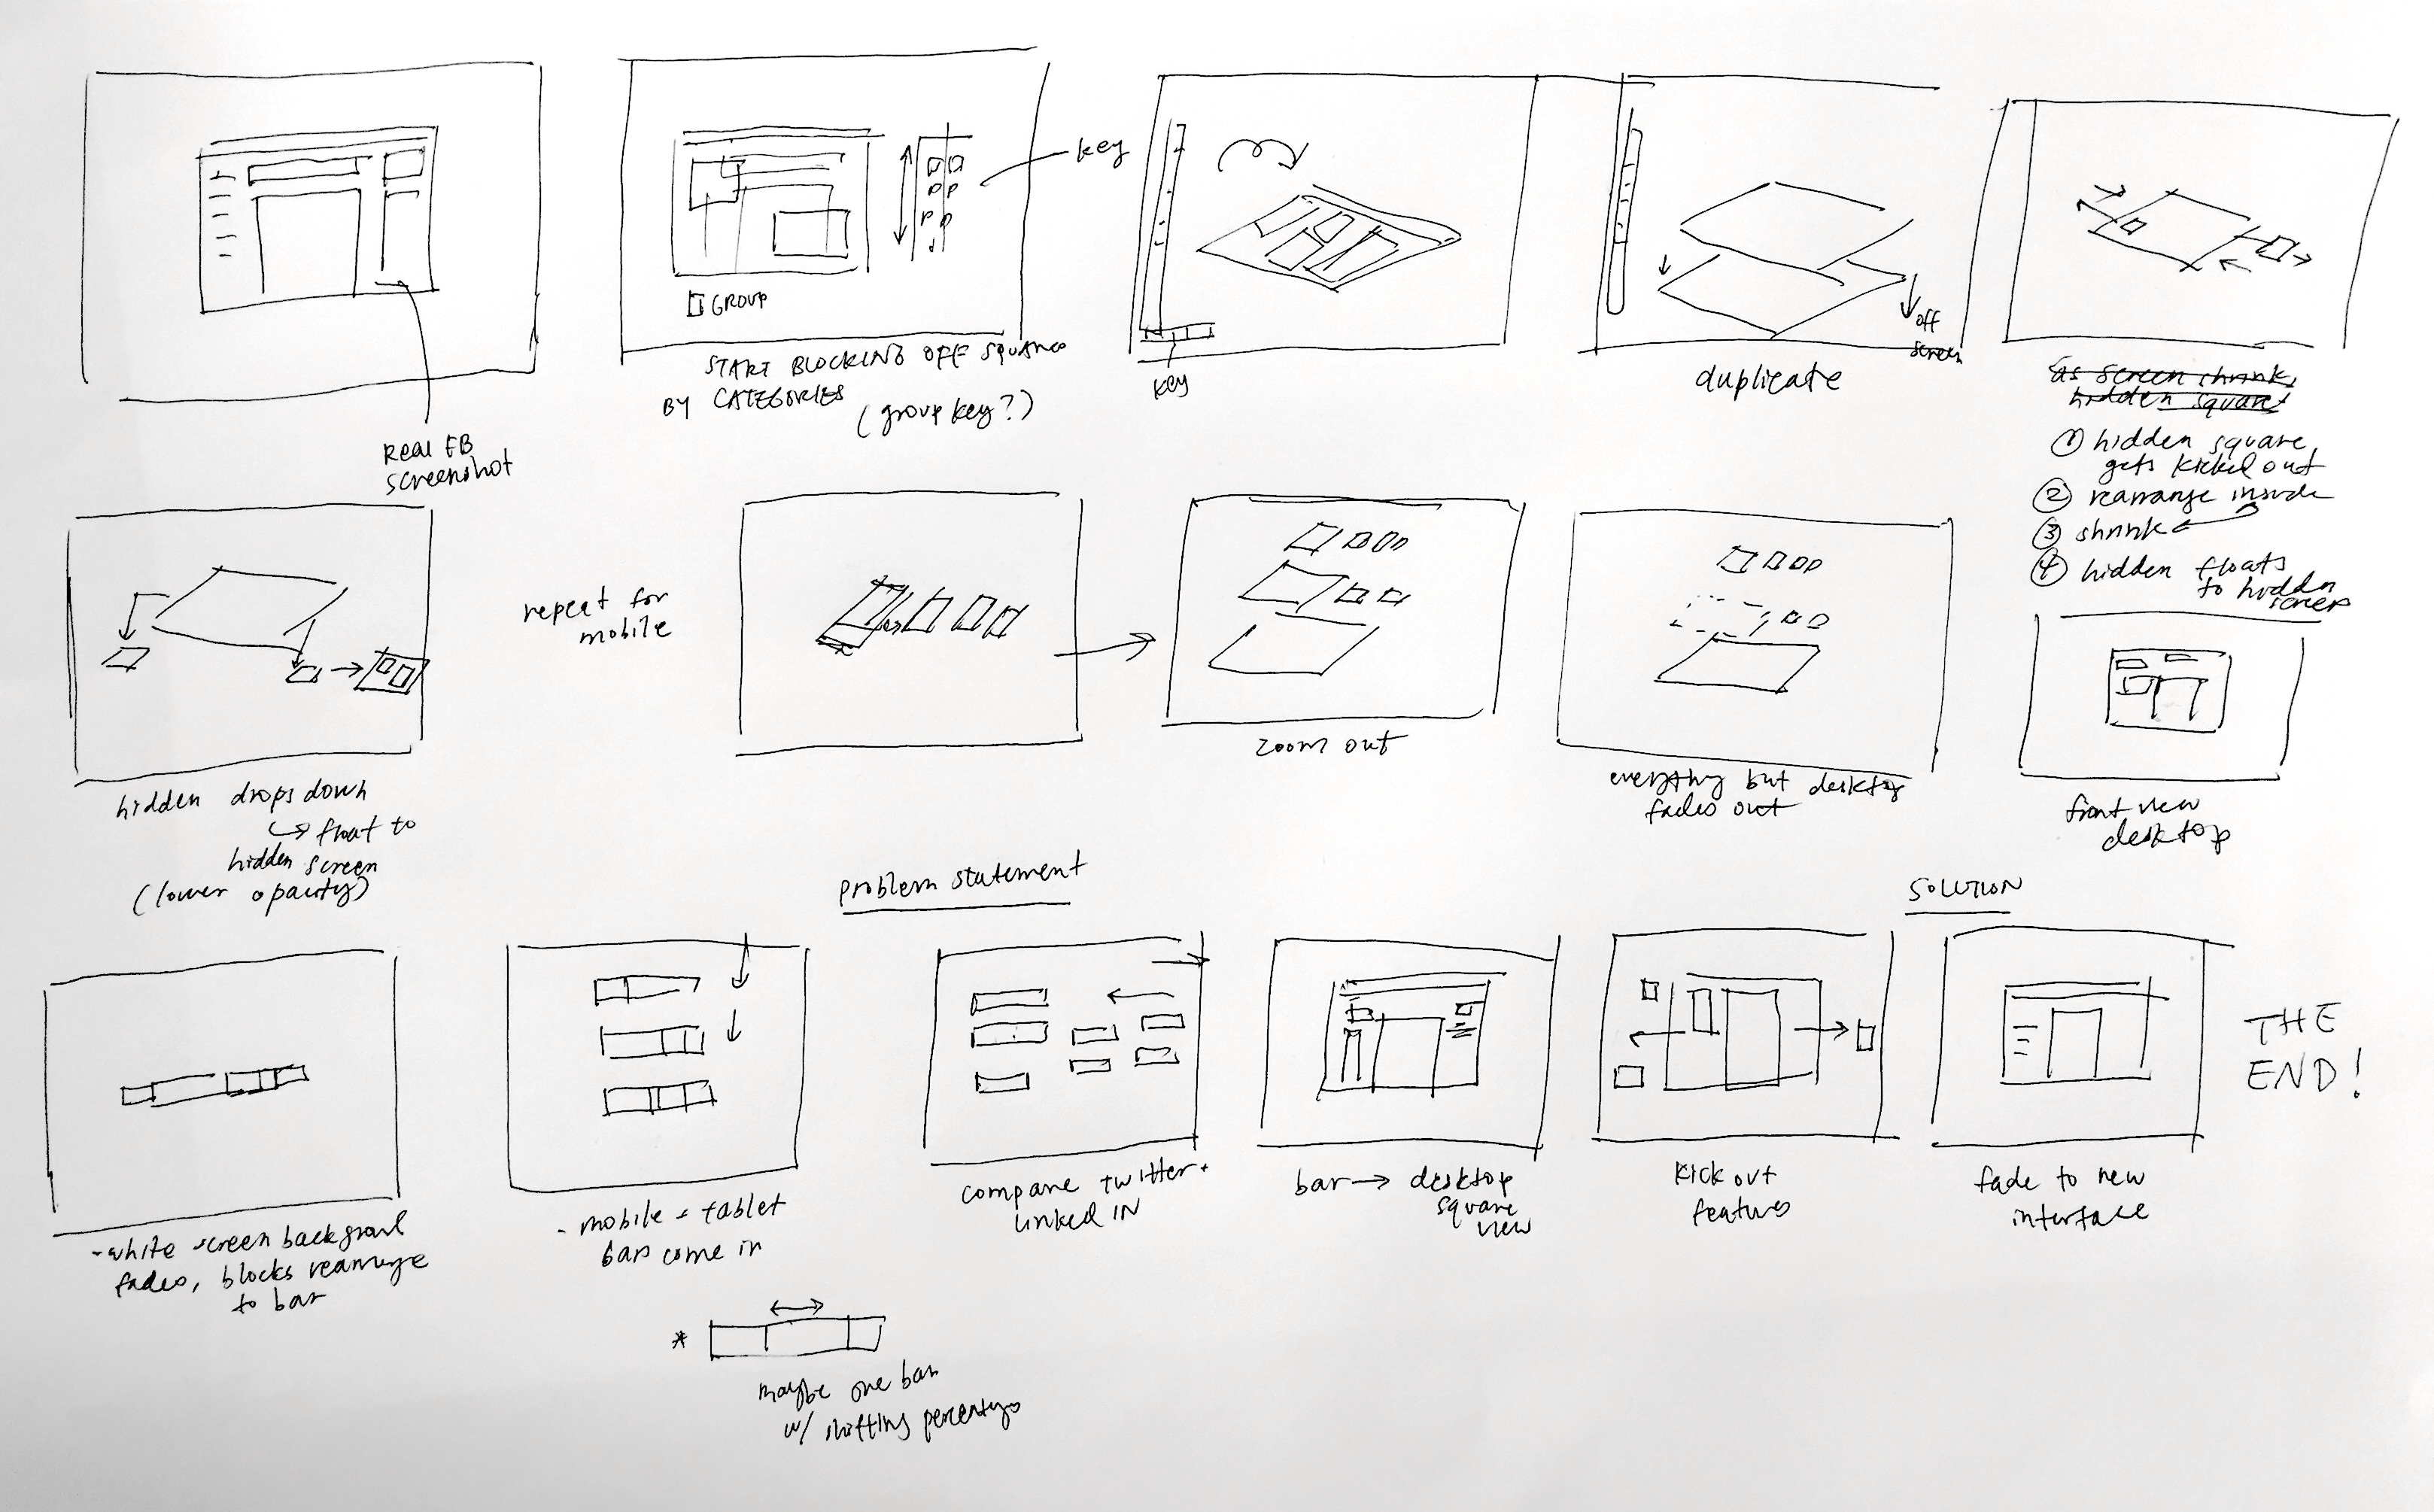 Real FB
screenshot
GROUP
START BLOCKING OFF SQUARES
BY CATEGORIES
(group key?)
key
key
off
screen
duplicate
as screen shrink,
hidden square
① hidden square
gets kicked out
② rearrange inside
③ shrink
④ hidden floats
to hidden
screen
hidden drops down
↳ float to
hidden screen
(lower opacity)
repeat for
mobile
zoom out
everything but desktop
fades out
front view
desktop
problem statement
SOLUTION
- white screen background
fades, blocks rearrange
to bar
- mobile + tablet
bars come in
* maybe one bar
w/ shifting percentages
compare twitter +
linked IN
bar → desktop
square
view
kick out
features
fade to new
interface
THE
END!